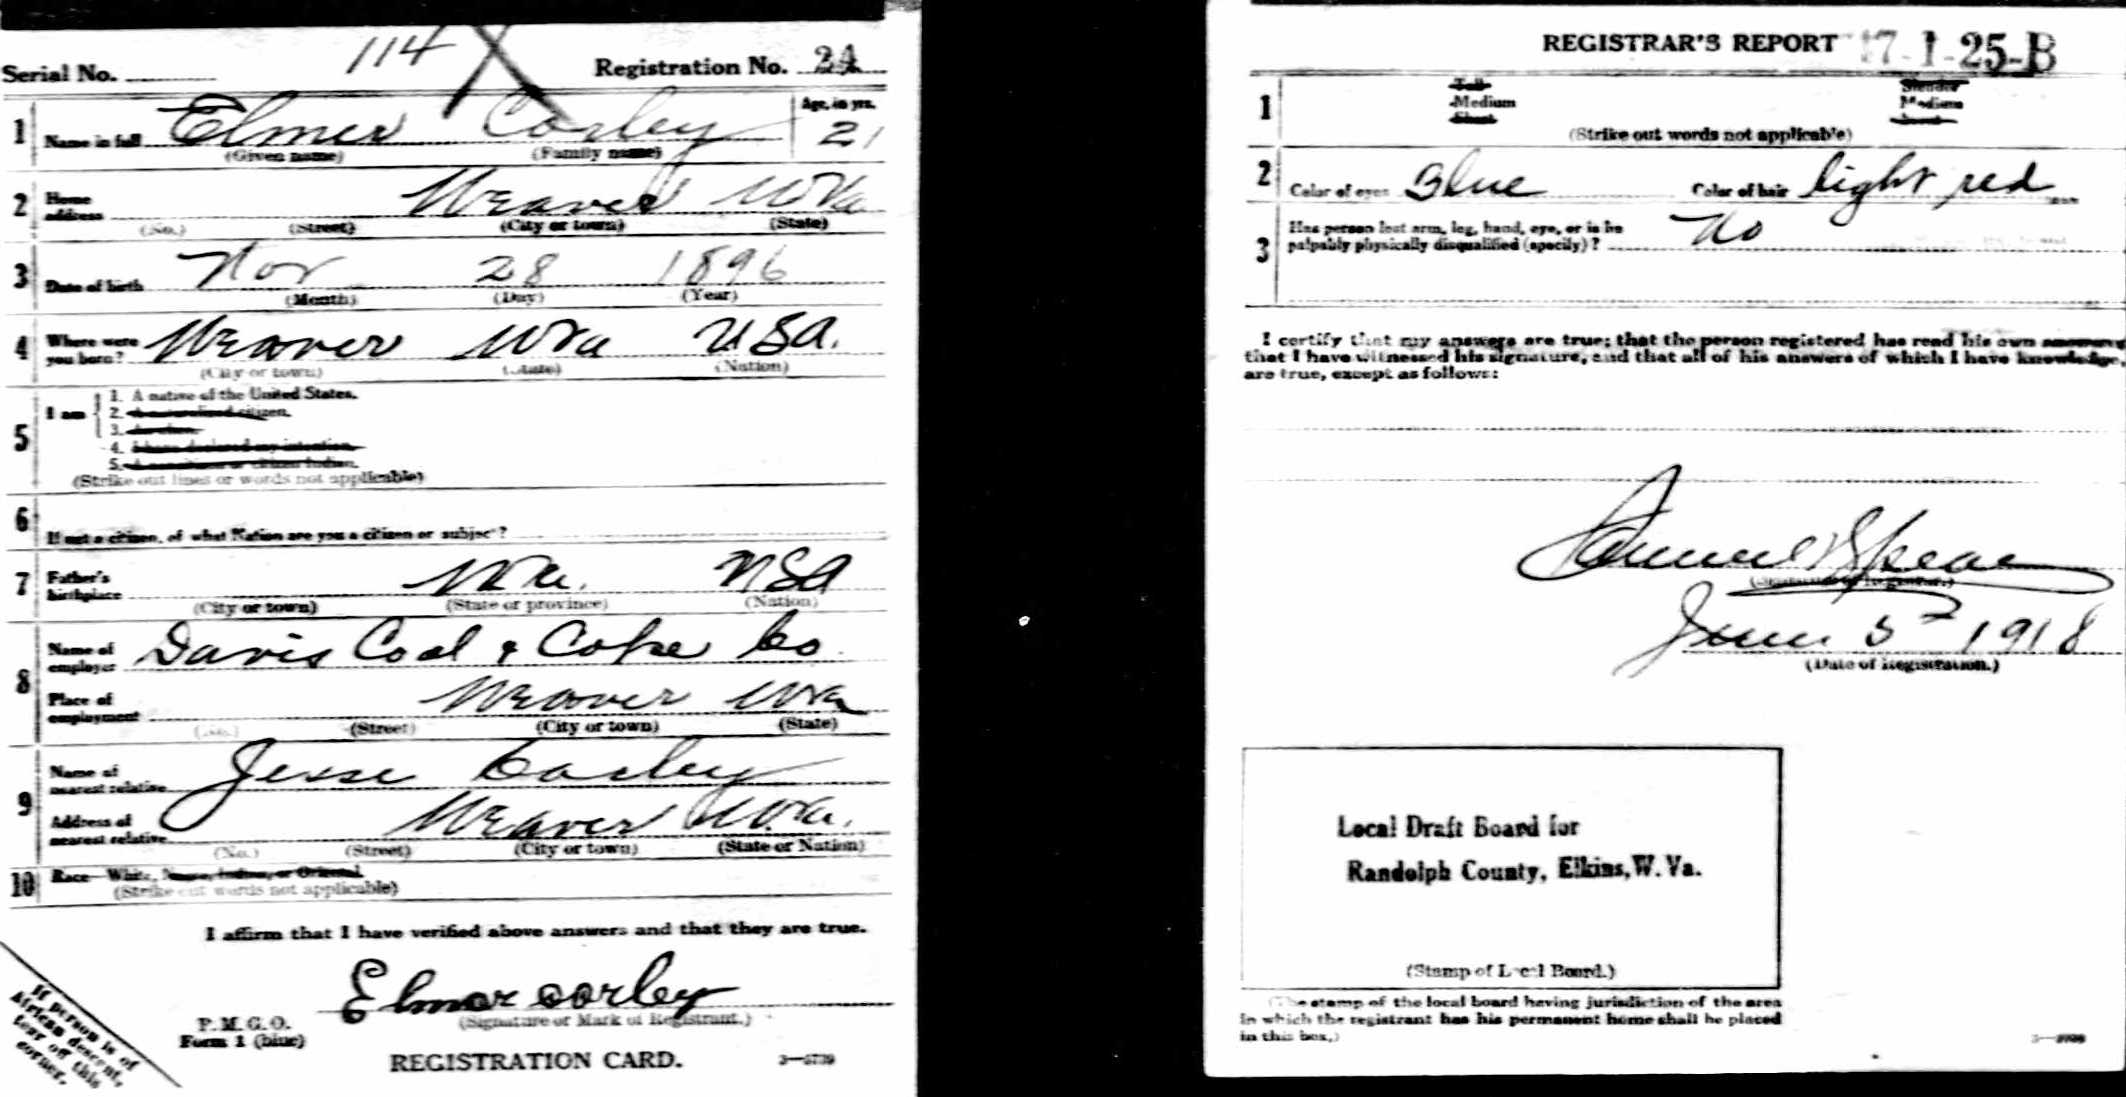 Serial No. 114 Registration No. 24
1 Name in full Elmer Corley Age, in yrs. 21
(Given name) (Family name)
2 Home address Weaver WVa
(No.) (Street) (City or town) (State)
3 Date of birth Nov 28 1896
(Month) (Day) (Year)
4 Where were you born? Weaver WVa USA.
(City or town) (State) (Nation)
5 I am
1. A native of the United States.
2. A naturalized citizen.
3. An alien.
4. I have declared my intention.
5. A noncitizen or citizen Indian.
(Strike out lines or words not applicable)
6 If not a citizen, of what Nation are you a citizen or subject?
7 Father's birthplace WVa. USA
(City or town) (State or province) (Nation)
8 Name of employer Davis Coal & Coke Co
Place of employment Weaver WVa
(No.) (Street) (City or town) (State)
9 Name of nearest relative Jesse Corley
Address of nearest relative Weaver WVa.
(No.) (Street) (City or town) (State or Nation)
10 Race—White, Negro, Indian, or Oriental
(Strike out words not applicable)
I affirm that I have verified above answers and that they are true.
Elmer corley
(Signature or Mark of Registrant.)
P. M. G. O.
Form 1 (blue)
REGISTRATION CARD.
If person is of
African descent,
tear off this
corner.
REGISTRAR'S REPORT 47-1-25-B
1 Tall Slender
Medium Medium
Short Stout
(Strike out words not applicable)
2 Color of eyes Blue Color of hair light red
3 Has person lost arm, leg, hand, eye, or is he
palpably physically disqualified (specify)? No
I certify that my answers are true; that the person registered has read his own answers,
that I have witnessed his signature, and that all of his answers of which I have knowledge,
are true, except as follows:
Spear
(Signature of Registrar.)
June 5 1918
(Date of Registration.)
Local Draft Board for
Randolph County, Elkins, W. Va.
(Stamp of Local Board.)
(The stamp of the local board having jurisdiction of the area
in which the registrant has his permanent home shall be placed
in this box.)